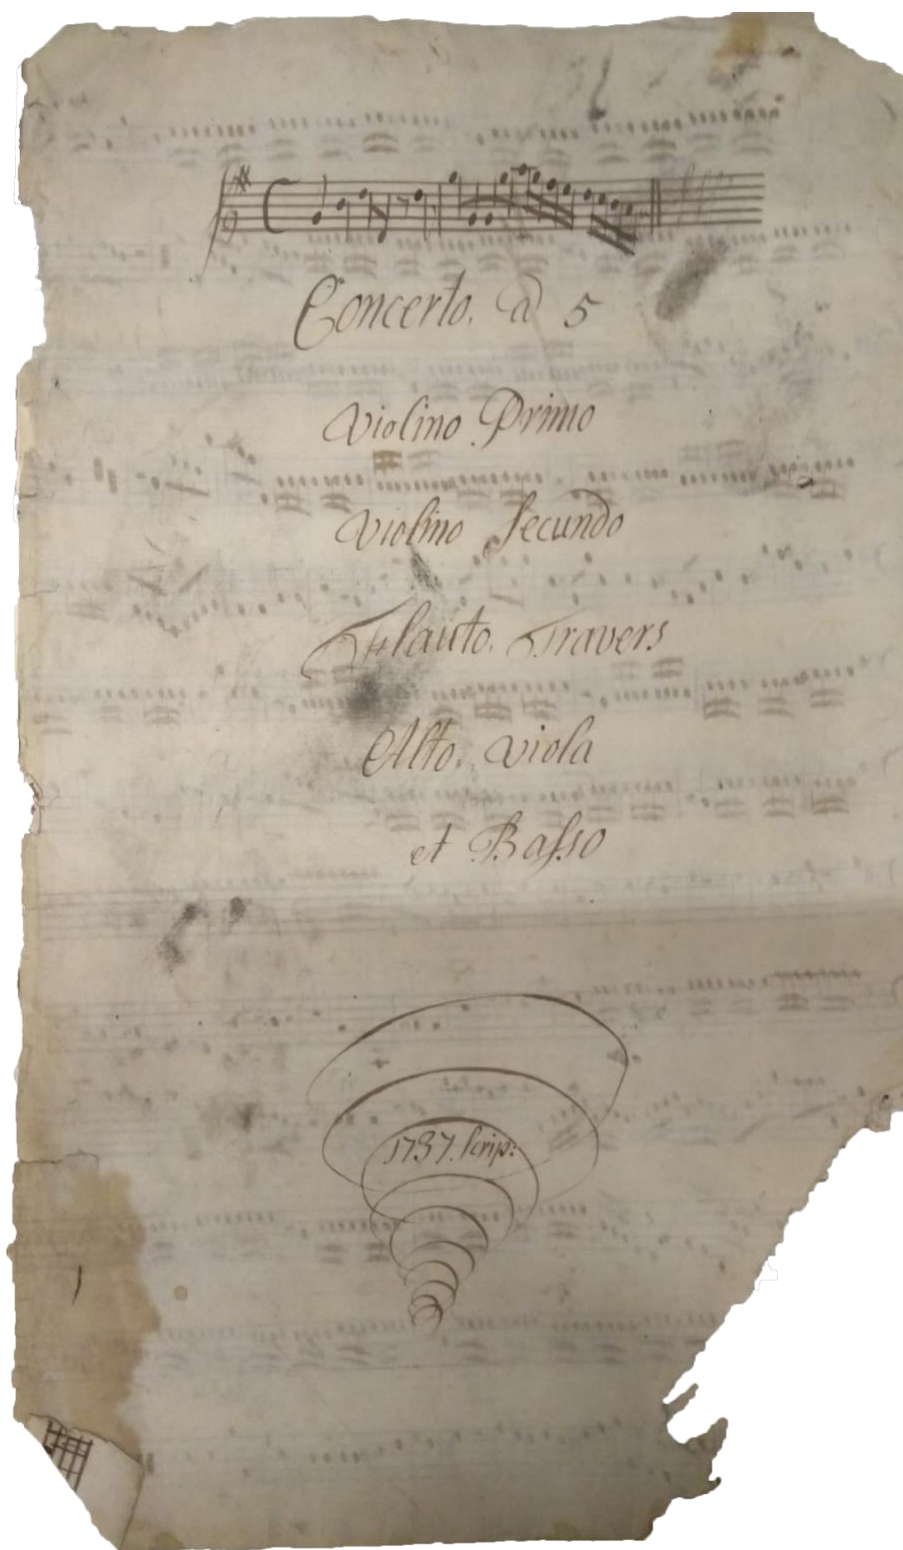 Concerto. a 5
Violino Primo
Violino Secundo
Flauto. Travers
Alto. Viola
et Baſso
1737. Scrip: